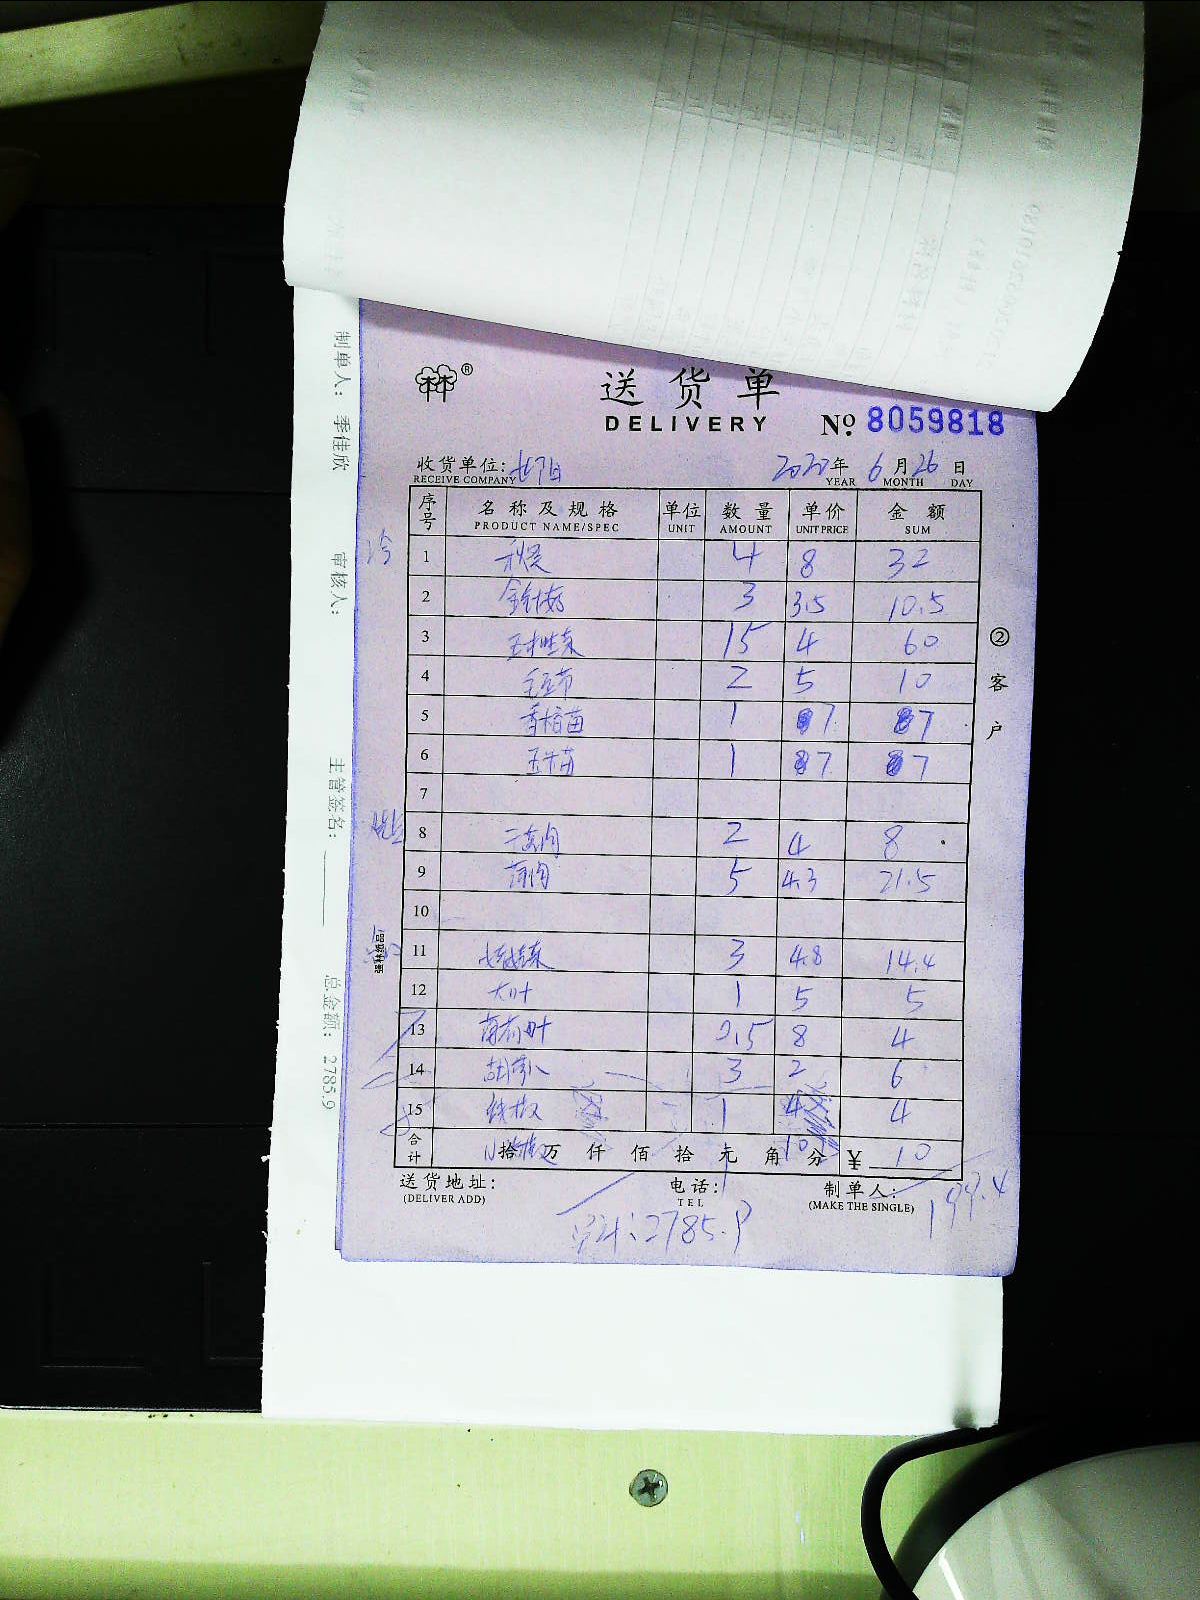 送货单
DELIVERY
® № 8059818
收货单位: 2022年 6月 26日
RECEIVE COMPANY YEAR MONTH DAY
序号 名称及规格 单位 数量 单价 金额
PRODUCT NAME/SPEC UNIT AMOUNT UNIT PRICE SUM
冷
1 秋葵 4 8 32
2 金针菇 3 3.5 10.5
3 15 4 60
4 毛豆节 2 5 10
5 香椿苗 1 7 7
6 1 7 7
7
8 二刀肉 2 4 8
9 5 4.3 21.5
10
11 娃娃菜 3 4.8 14.4
12 1 5 5
13 薄荷叶 0.5 8 4
14 胡萝卜 3 2 6
15 线椒 1 4 4
合计 拾 万 仟 佰 拾 元 角 分 ¥ 10
10
送货地址: 电话: 制单人:
(DELIVER ADD) TEL (MAKE THE SINGLE)
199.4
总计:2785.9
②客户
强林纸品
制单人: 季佳欣
审核人:
主管签名:
总金额: 2785.9